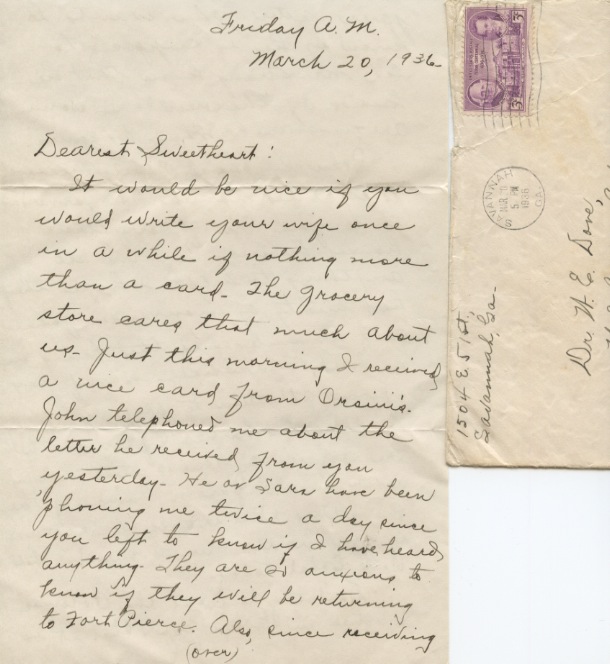 Friday A.M.
March 20, 1936-
Dearest Sweetheart:
It would be nice if you
would write your wife once
in a while if nothing more
than a card- The grocery
store cares that much about
us- Just this morning I received
a nice card from Orsini's.
John telephoned me about the
letter he received from you
yesterday- He or Sara have been
'phoning me twice a day since
you left to know if I have heard
anything. They are so anxious to
know if they will be returning
to Fort Pierce. Also, since receiving
(over)
3
SAVANNAH
MAR 20
5 PM
1936
GA.
1504 E 51st,
Savannah, Ga-
Dr. W. E. Dove,